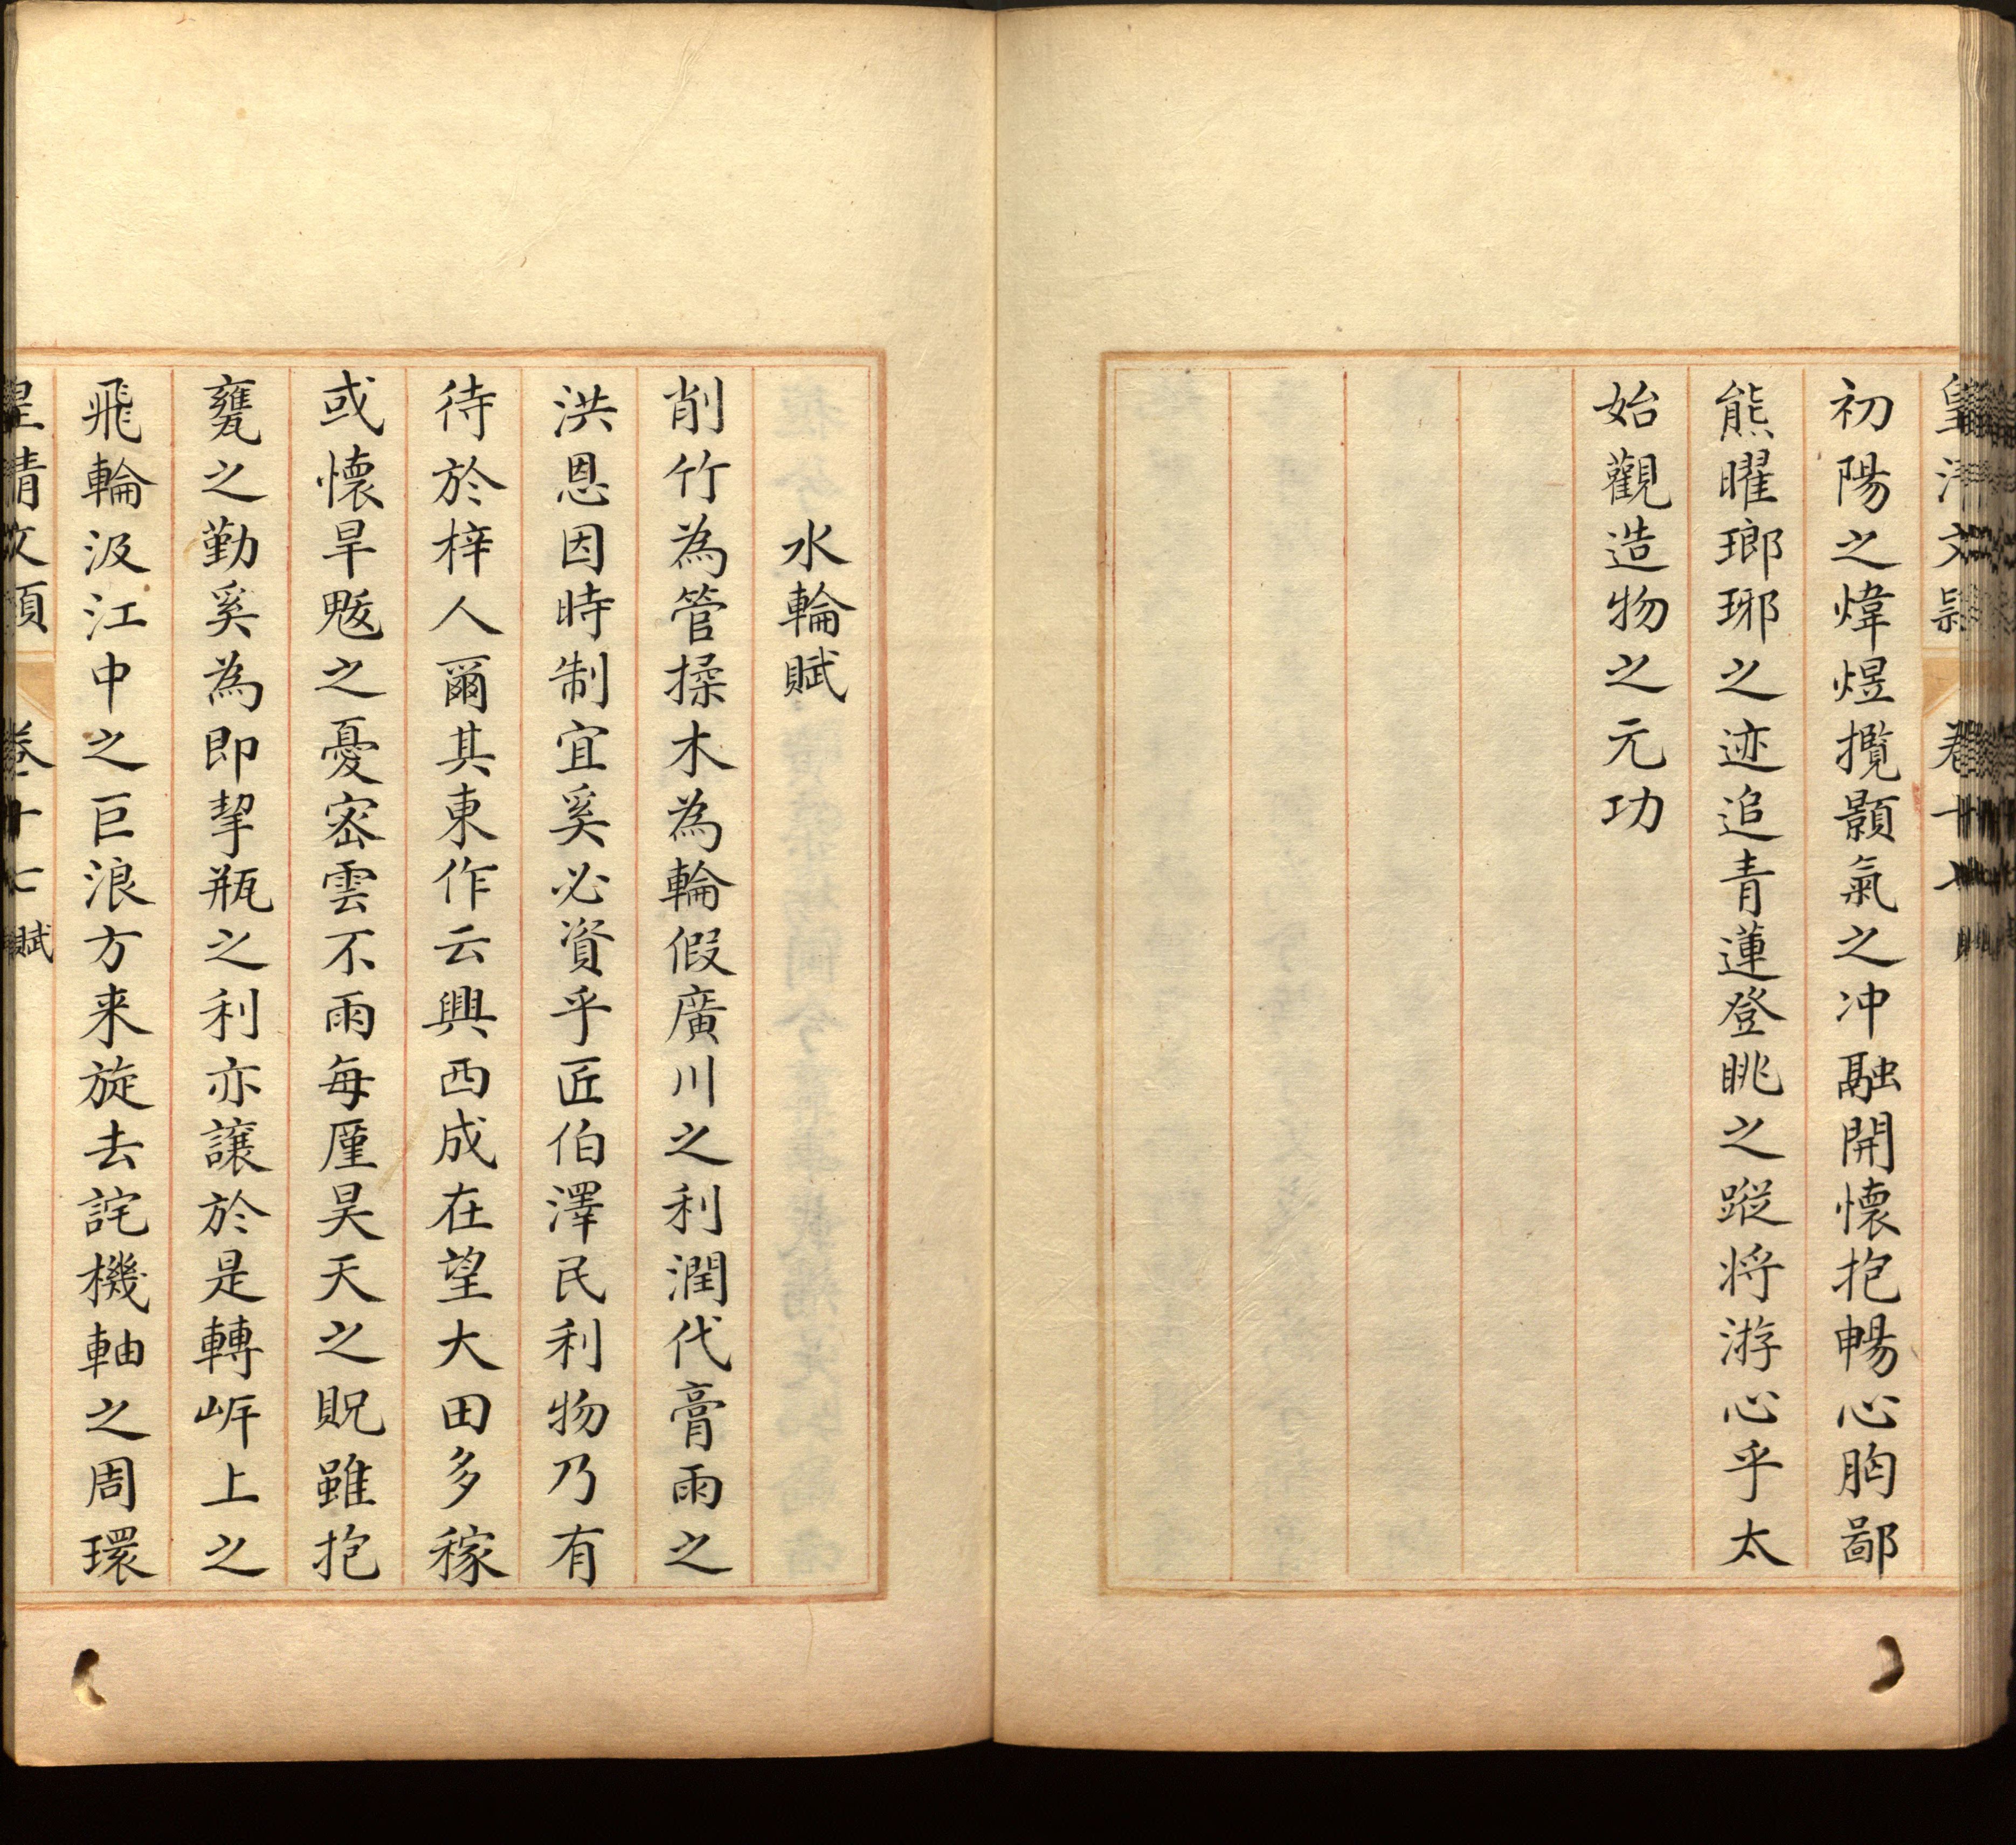 皇清文潁 卷十七
初陽之煒煜攬顥氣之冲融開懷抱暢心胸鄙
熊曜瑯琊之迹追青蓮登眺之蹤将游心乎太
始觀造物之元功
水輪賦
削竹為管揉木為輪假廣川之利潤代膏雨之
洪恩因時制宜奚必資乎匠伯澤民利物乃有
待於梓人爾其東作云興西成在望大田多稼
或懷旱魃之憂宻雲不雨每廑昊天之貺雖抱
甕之勤奚為即挈瓶之利亦讓於是轉㟁上之
飛輪汲江中之巨浪方来旋去詫機軸之周環
皇清文潁 卷十七 賦